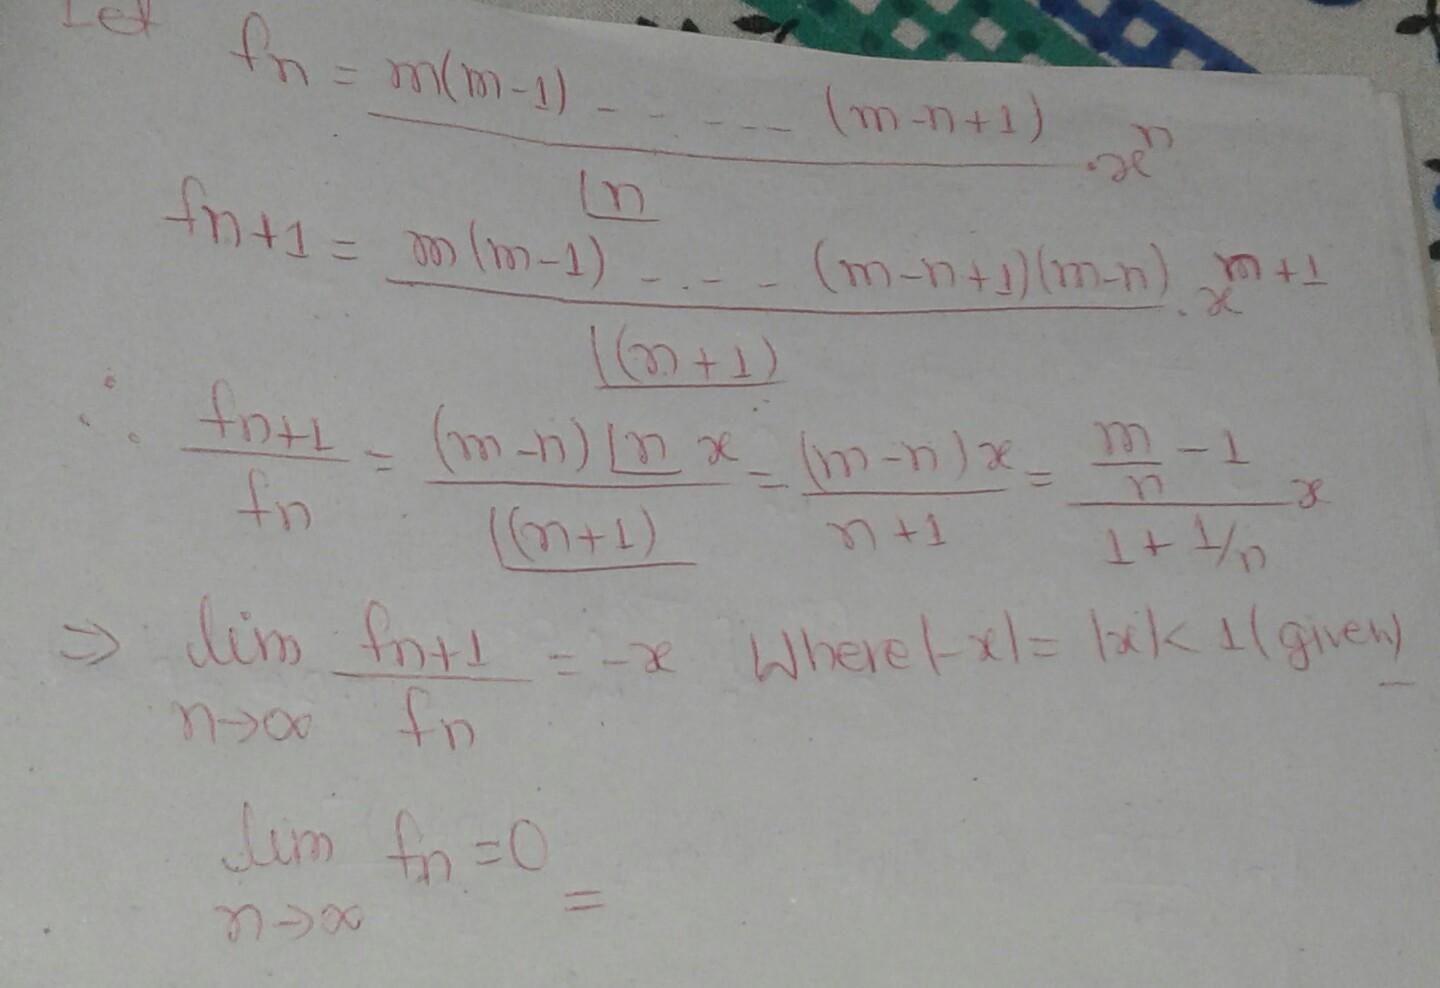 Let fn = m(m-1) - - - - - (m-n+1) / ⌊n . x^n
fn+1 = m(m-1) - - - - (m-n+1)(m-n) / ⌊(n+1) . x^m+1
∴ fn+1 / fn = (m-n) ⌊n x / ⌊(n+1) = (m-n)x / n+1 = m/n - 1 / 1 + 1/n x
⇒ lim n→∞ fn+1 / fn = -x Where |-x| = |x| < 1 (given)
lim n→∞ fn = 0 =